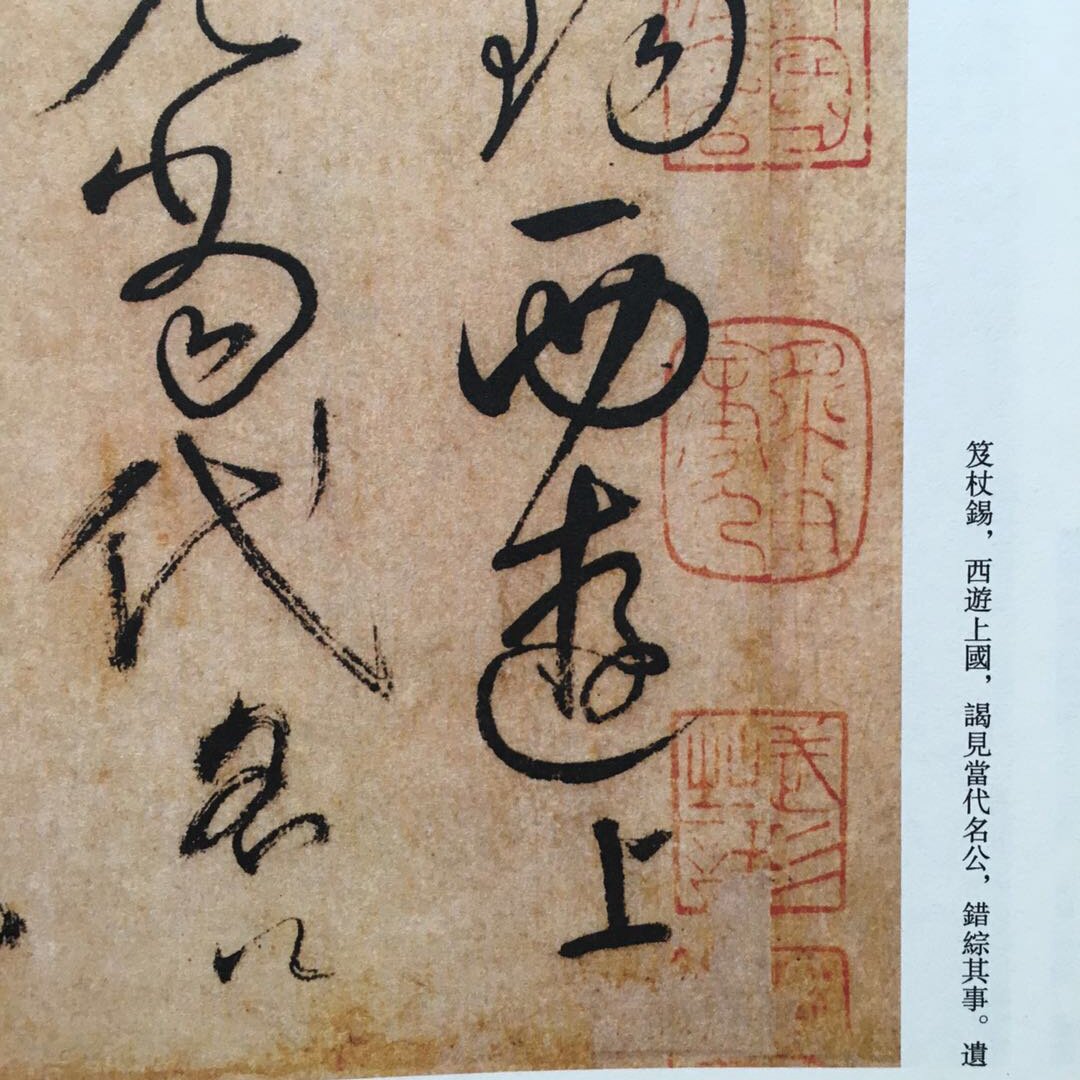 笈杖錫，西遊上國，謁見當代名公，錯綜其事。遺
錫西遊上
見當代名公